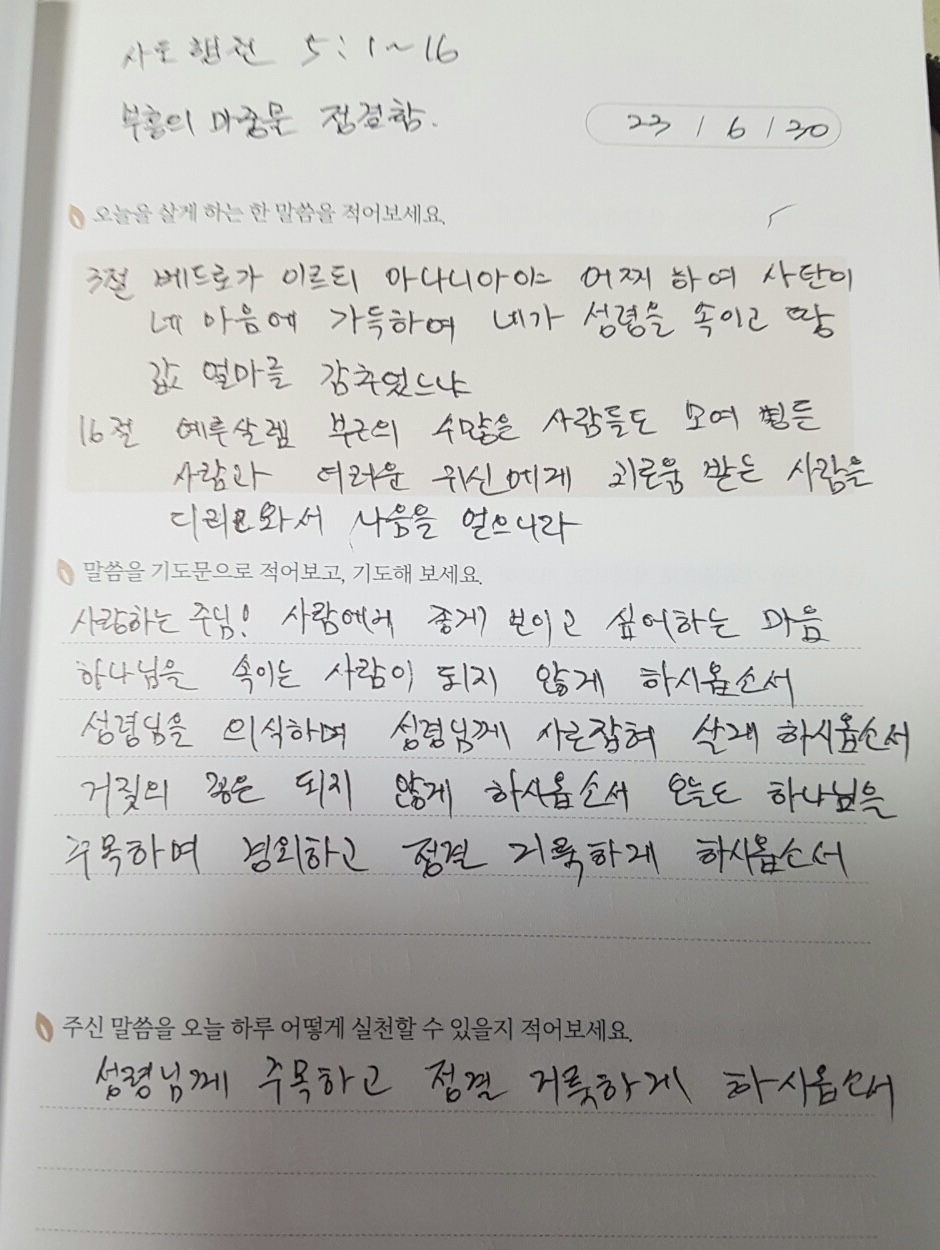 사도행전 5:1~16
부흥의 마중물 정결함.
23 / 6 / 30
오늘을 살게 하는 한 말씀을 적어보세요.
3절 베드로가 이르되 아나니아야 어찌하여 사탄이
네 마음에 가득하여 네가 성령을 속이고 땅
값 얼마를 감추었느냐
16절 예루살렘 부근의 수많은 사람들도 모여 병든
사람과 더러운 귀신에게 괴로움 받는 사람을
데리고 와서 나음을 얻으니라
말씀을 기도문으로 적어보고, 기도해 보세요.
사랑하는 주님! 사람에게 좋게 보이고 싶어하는 마음
하나님을 속이는 사람이 되지 않게 하시옵소서
성령님을 의식하며 성령님께 사로잡혀 살게 하시옵소서
거짓의 꽃은 되지 않게 하시옵소서 오늘도 하나님을
주목하며 경외하고 정결 거룩하게 하시옵소서
주신 말씀을 오늘 하루 어떻게 실천할 수 있을지 적어보세요.
성령님께 주목하고 정결 거룩하게 하시옵소서